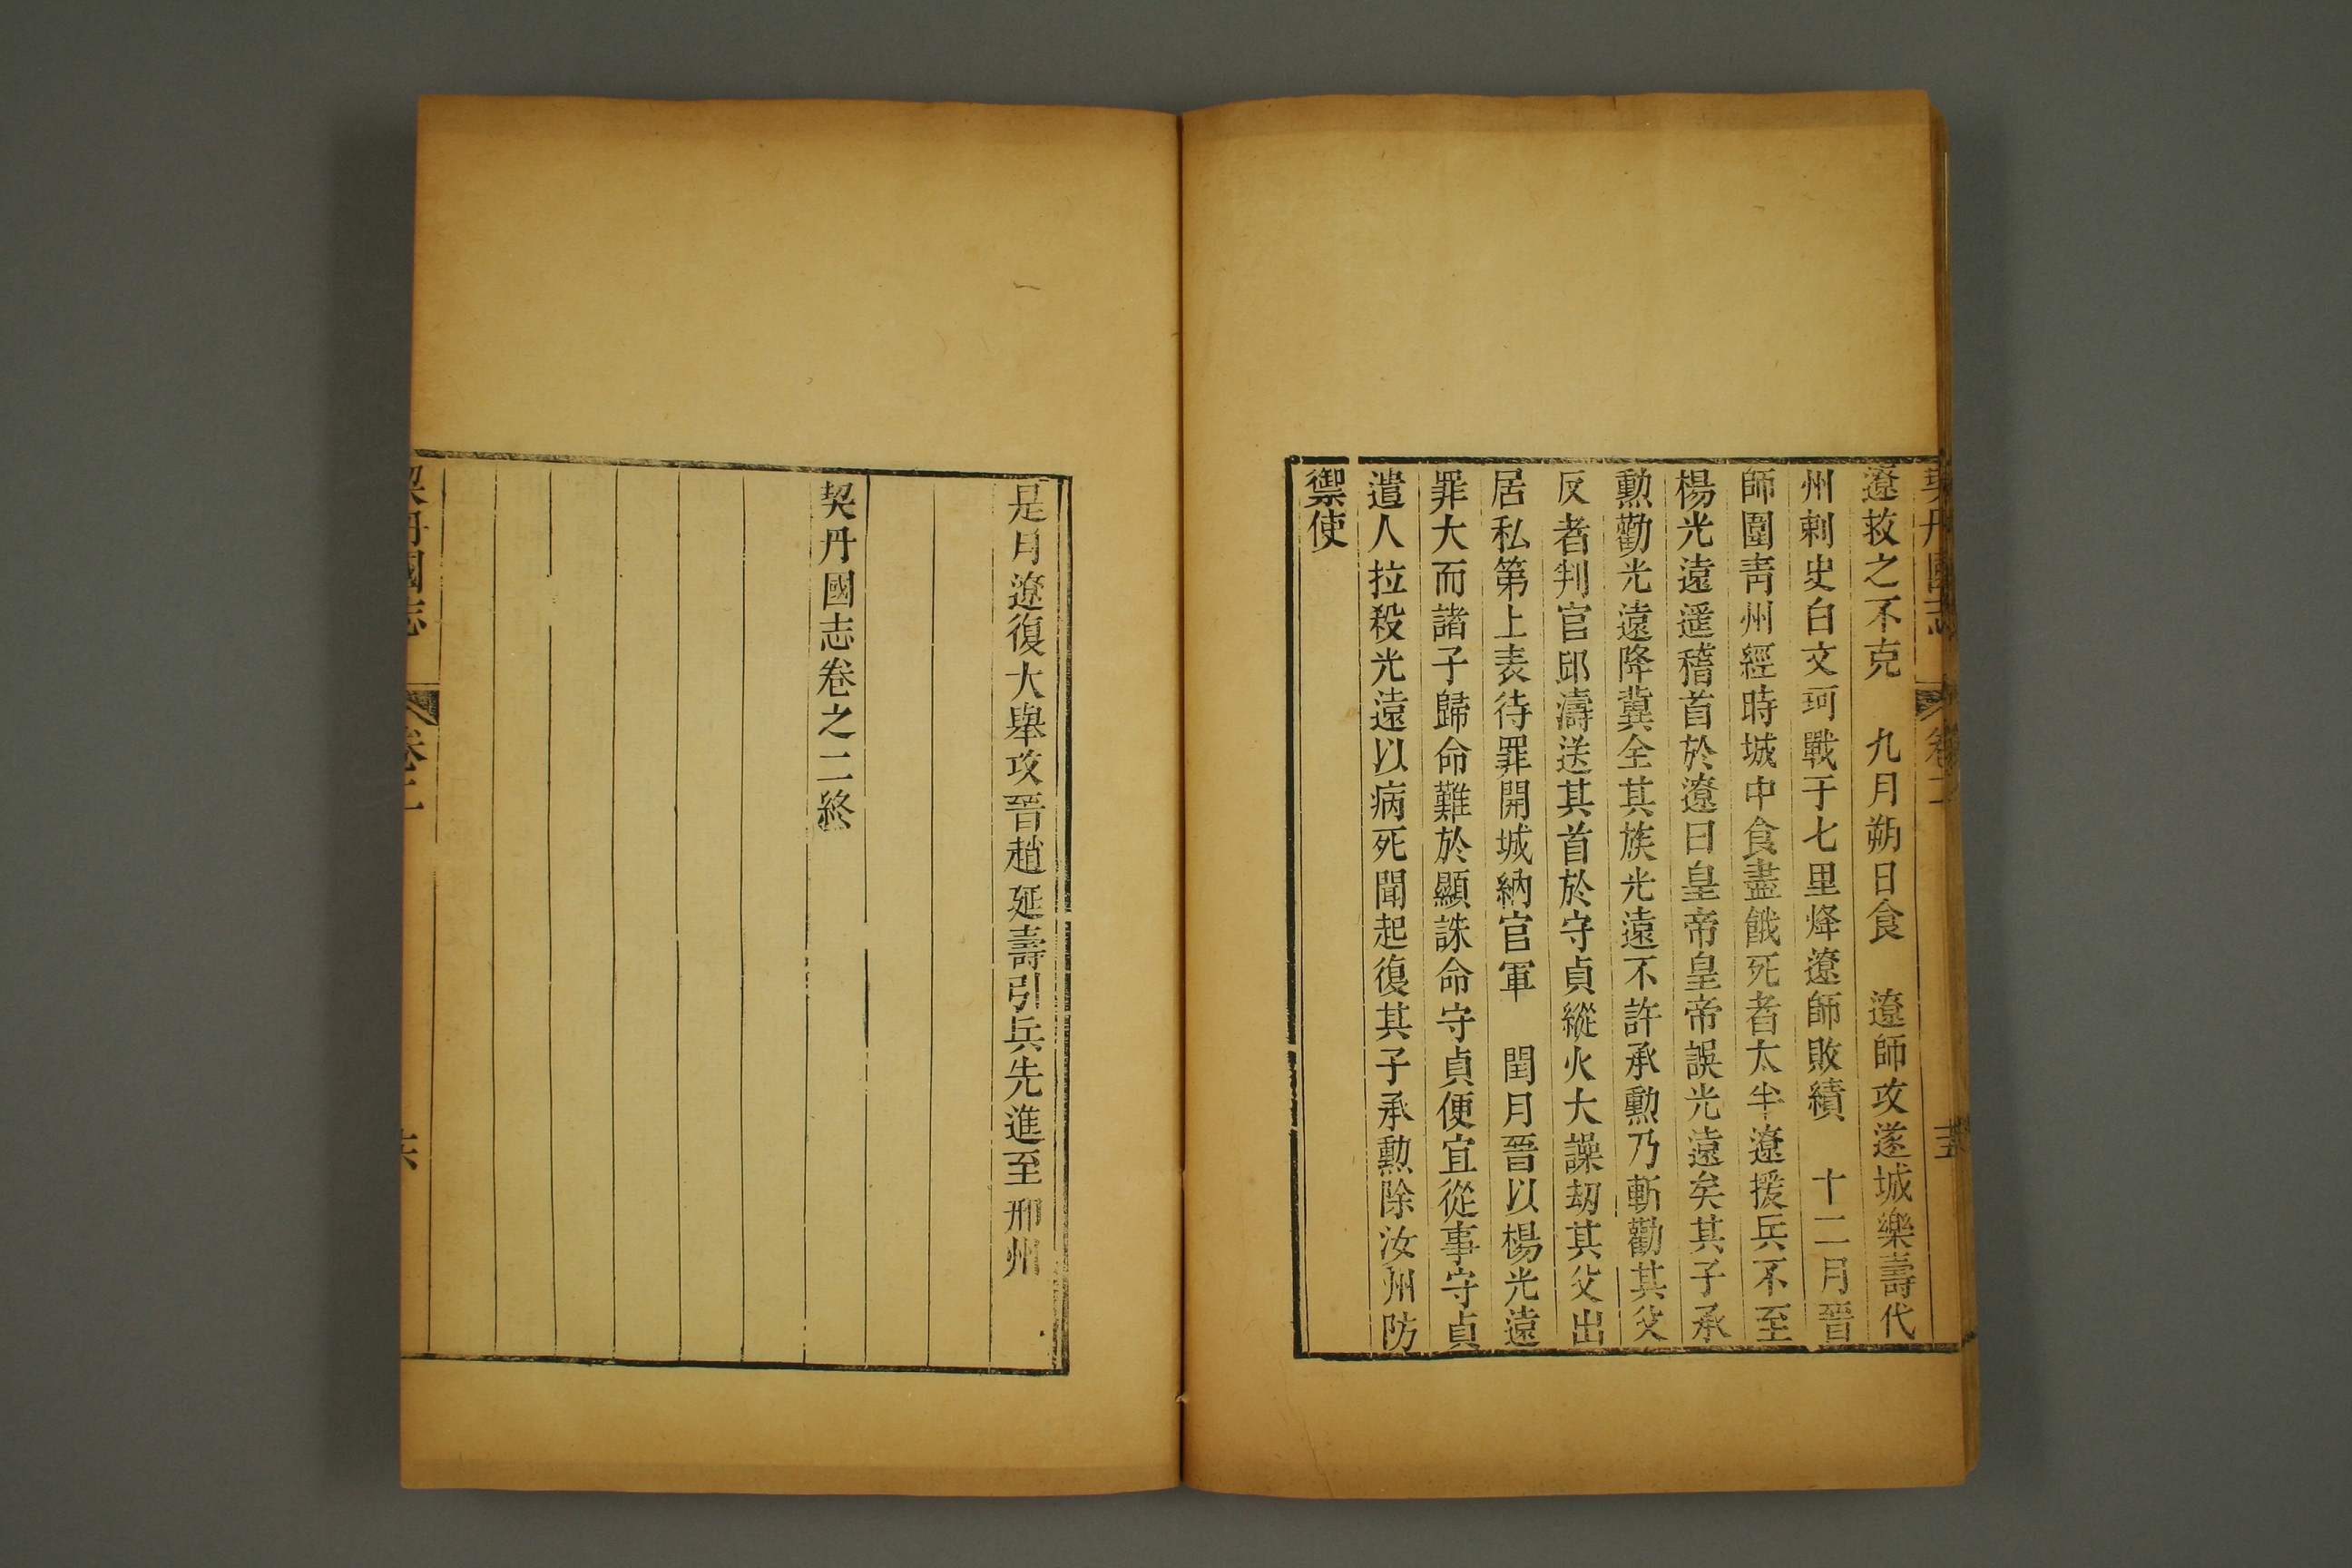 契丹國志 卷二 十五
遼救之不克　九月朔日食　遼師攻遂城樂壽代
州刺史白文珂戰于七里烽遼師敗績　十二月晉
師圍青州經時城中食盡餓死者太半遼援兵不至
楊光遠遥稽首於遼曰皇帝皇帝誤光遠矣其子承
勲勸光遠降冀全其族光遠不許承勲乃斬勸其父
反者判官邱濤送其首於守貞縱火大譟刼其父出
居私第上表待罪開城納官軍　閏月晉以楊光遠
罪大而諸子歸命難於顯誅命守貞便宜從事守貞
遣人拉殺光遠以病死聞起復其子承勲除汝州防
禦使
是月遼復大舉攻晉趙延壽引兵先進至邢州
契丹國志卷之二終
契丹國志 卷二 十六